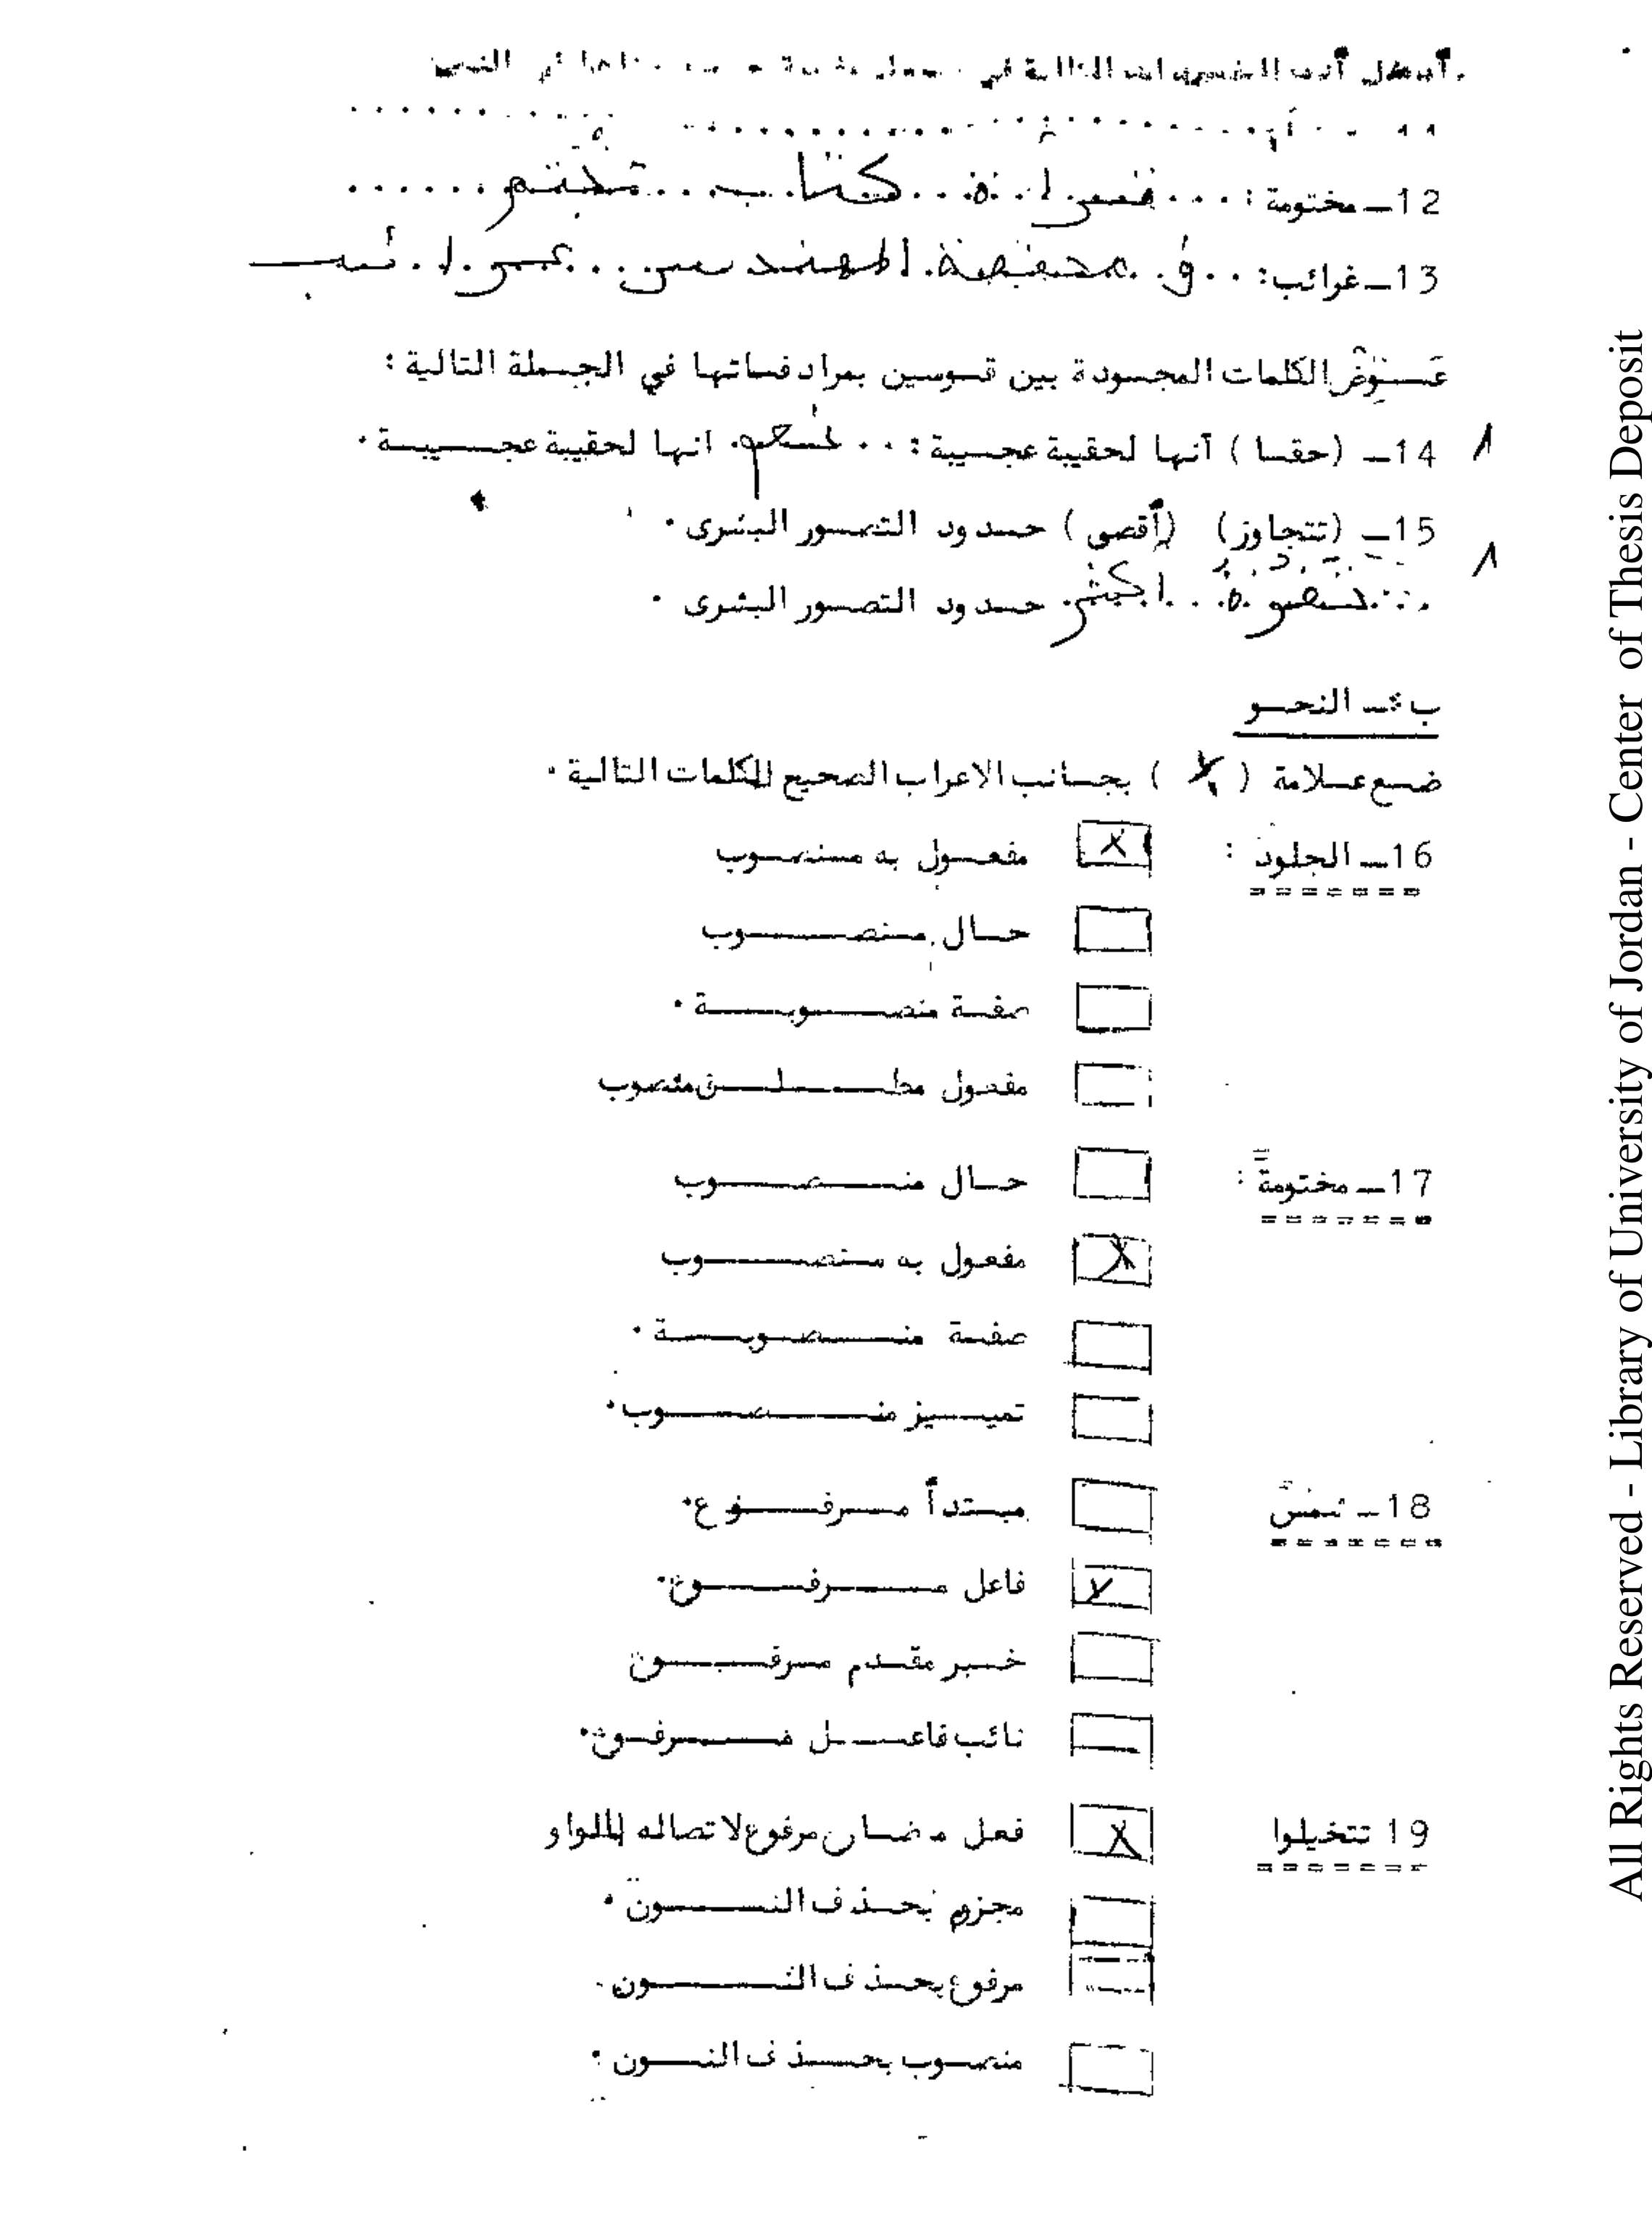 أدخل أنت المفردات التالية في جمل مفيدة
11
12ـ مختومة : قرأة كتاب مختم
13ـ غرائب: في حقيقة المهندس غرائب
عوّض الكلمات الموجودة بين قوسين بمرادفاتها في الجملة التالية :
14ـ (حقا) آنها لحقيبة عجيبة : نعم انها لحقيبة عجيبة .
15ـ (تتجاوز) (أقصى) حدود التصور البشرى .
اكثر حدود التصور البشرى .
ب ـ النحو
ضع علامة ( X ) بجانب الاعراب الصحيح للكلمات التالية .
16ـ الجلود : X مفعول به منصوب
حال منصوب
صفة منصوبة .
مفعول مطلق منصوب
17ـ مختومة : حال منصوب
X مفعول به منصوب
صفة منصوبة .
تمييز منصوب .
18ـ شمس مبتدأ مرفوع .
X فاعل مرفوع .
خبر مقدم مرفوع
نائب فاعل مرفوع .
19 تتخيلوا X فعل مضارع مرفوع لاتصاله بالواو
مجزوم بحذف النون .
مرفوع بحذف النون .
منصوب بحذف النون .
All Rights Reserved - Library of University of Jordan - Center of Thesis Deposit